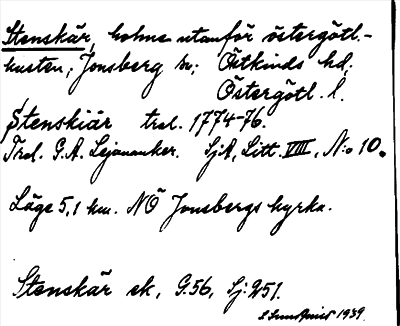 Stenskär, holme utanför östergötl.-
kusten, Jonsberg sn; Östkinds hd,
Östergötl. l.
Stenskiär trol. 1774-76.
Trol. G.A. Lejonanker. SjA, Litt. VIII, N:o 10.
Läge 5,1 km. NÖ Jonsbergs kyrka.
Stenskär ek, G.56, Sj:251.
1939.